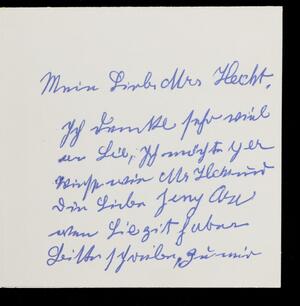 Mein Liebe Mrs Hecht.
Ich denke sehr viel
an Sie, Ich möchte
wie Mr Hecht und
Die Liebe Jeny
wen Sie Zit haben
bitte schreiben, zu mir